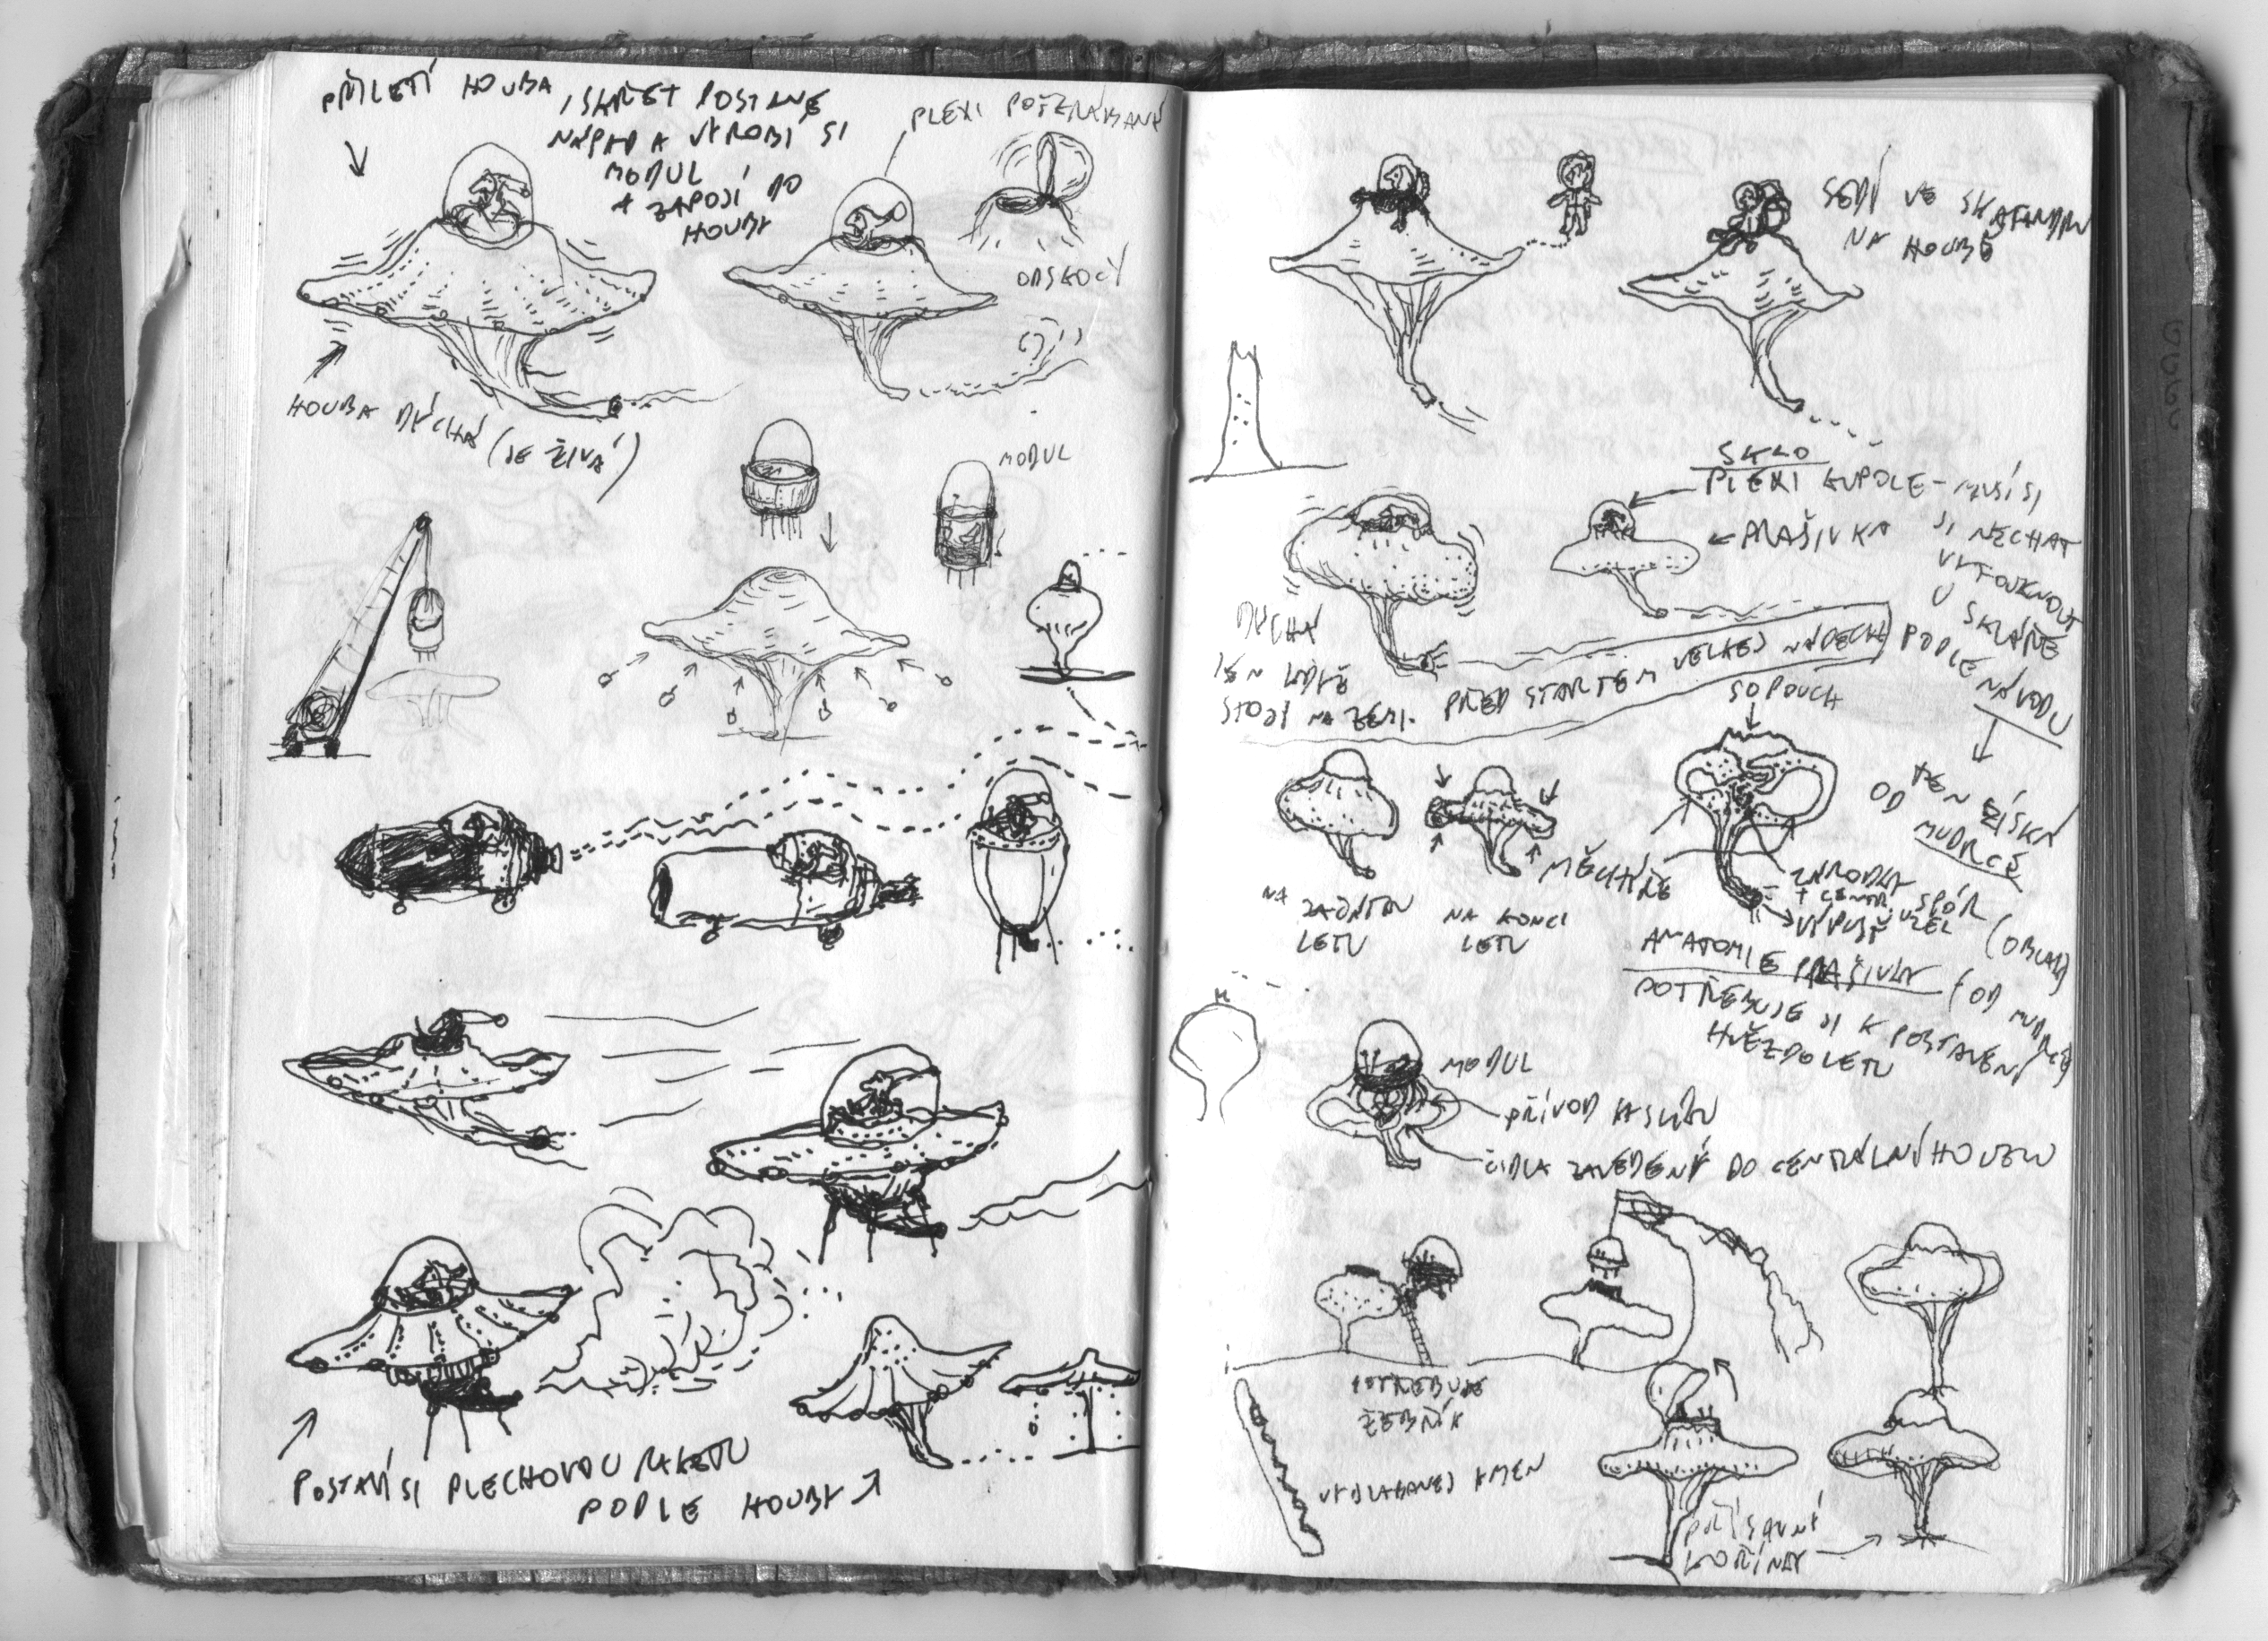 PŘILETÍ HOUBA
, SKŘET DOSTANE
NÁPAD A VYROBÍ SI
MODUL
+ ZAPOJÍ DO
HOUBY
PLEXI POŠKRÁBANÝ
ODSKOČÝ
HOUBA DÝCHÁ (JE ŽIVÁ)
MODUL
POSTAVÍ SI PLECHOVOU RAKETU
PODLE HOUBY
SEDÍ VE SKAFANDRU
NA HOUBĚ
SKLO
PLEXI KUPOLE - MUSÍ SI
JI NECHAT
VYFOUKNOUT
U SKLÁŘE
PODLE
NÁVODU
TEN ZÍSKÁ
OD MUDRCE
PRAŠIVKA
DÝCHÁ
JEN KDYŽ
STOJÍ NA ZEMI.
PŘED STARTEM VELKEJ NÁDECH
SOPOUCH
NA ZAČÁTKU
LETU
NA KONCI
LETU
MĚCHÝŘE
ZÁRODKY SPÓR
+ CENTR. UZEL
VÝPUSŤ
ANATOMIE PRAŠIVKY (OD MUDRCŮ)
POTŘEBUJE JI K POSTAVENÍ
HVĚZDOLETU
MODUL
PŘÍVOD KYSLÍKU
ČIDLA ZAVEDENÝ DO CENTRÁLNÍHO UZLU
POTŘEBUJE
ŽEBŘÍK
VYDLABANEJ KMEN
PŘÍSAVNÝ
KOŘÍNKY